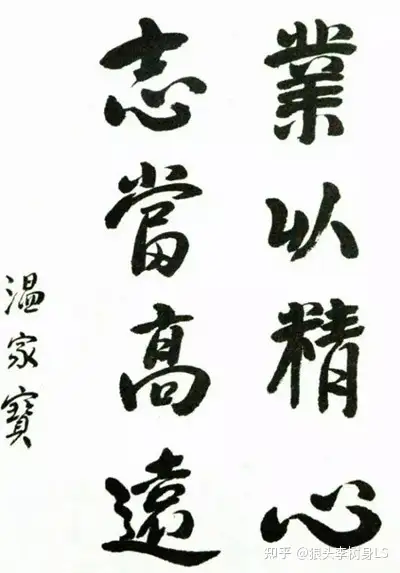 業以精心
志當高遠
温家寶
知乎 @狼头李树身LS